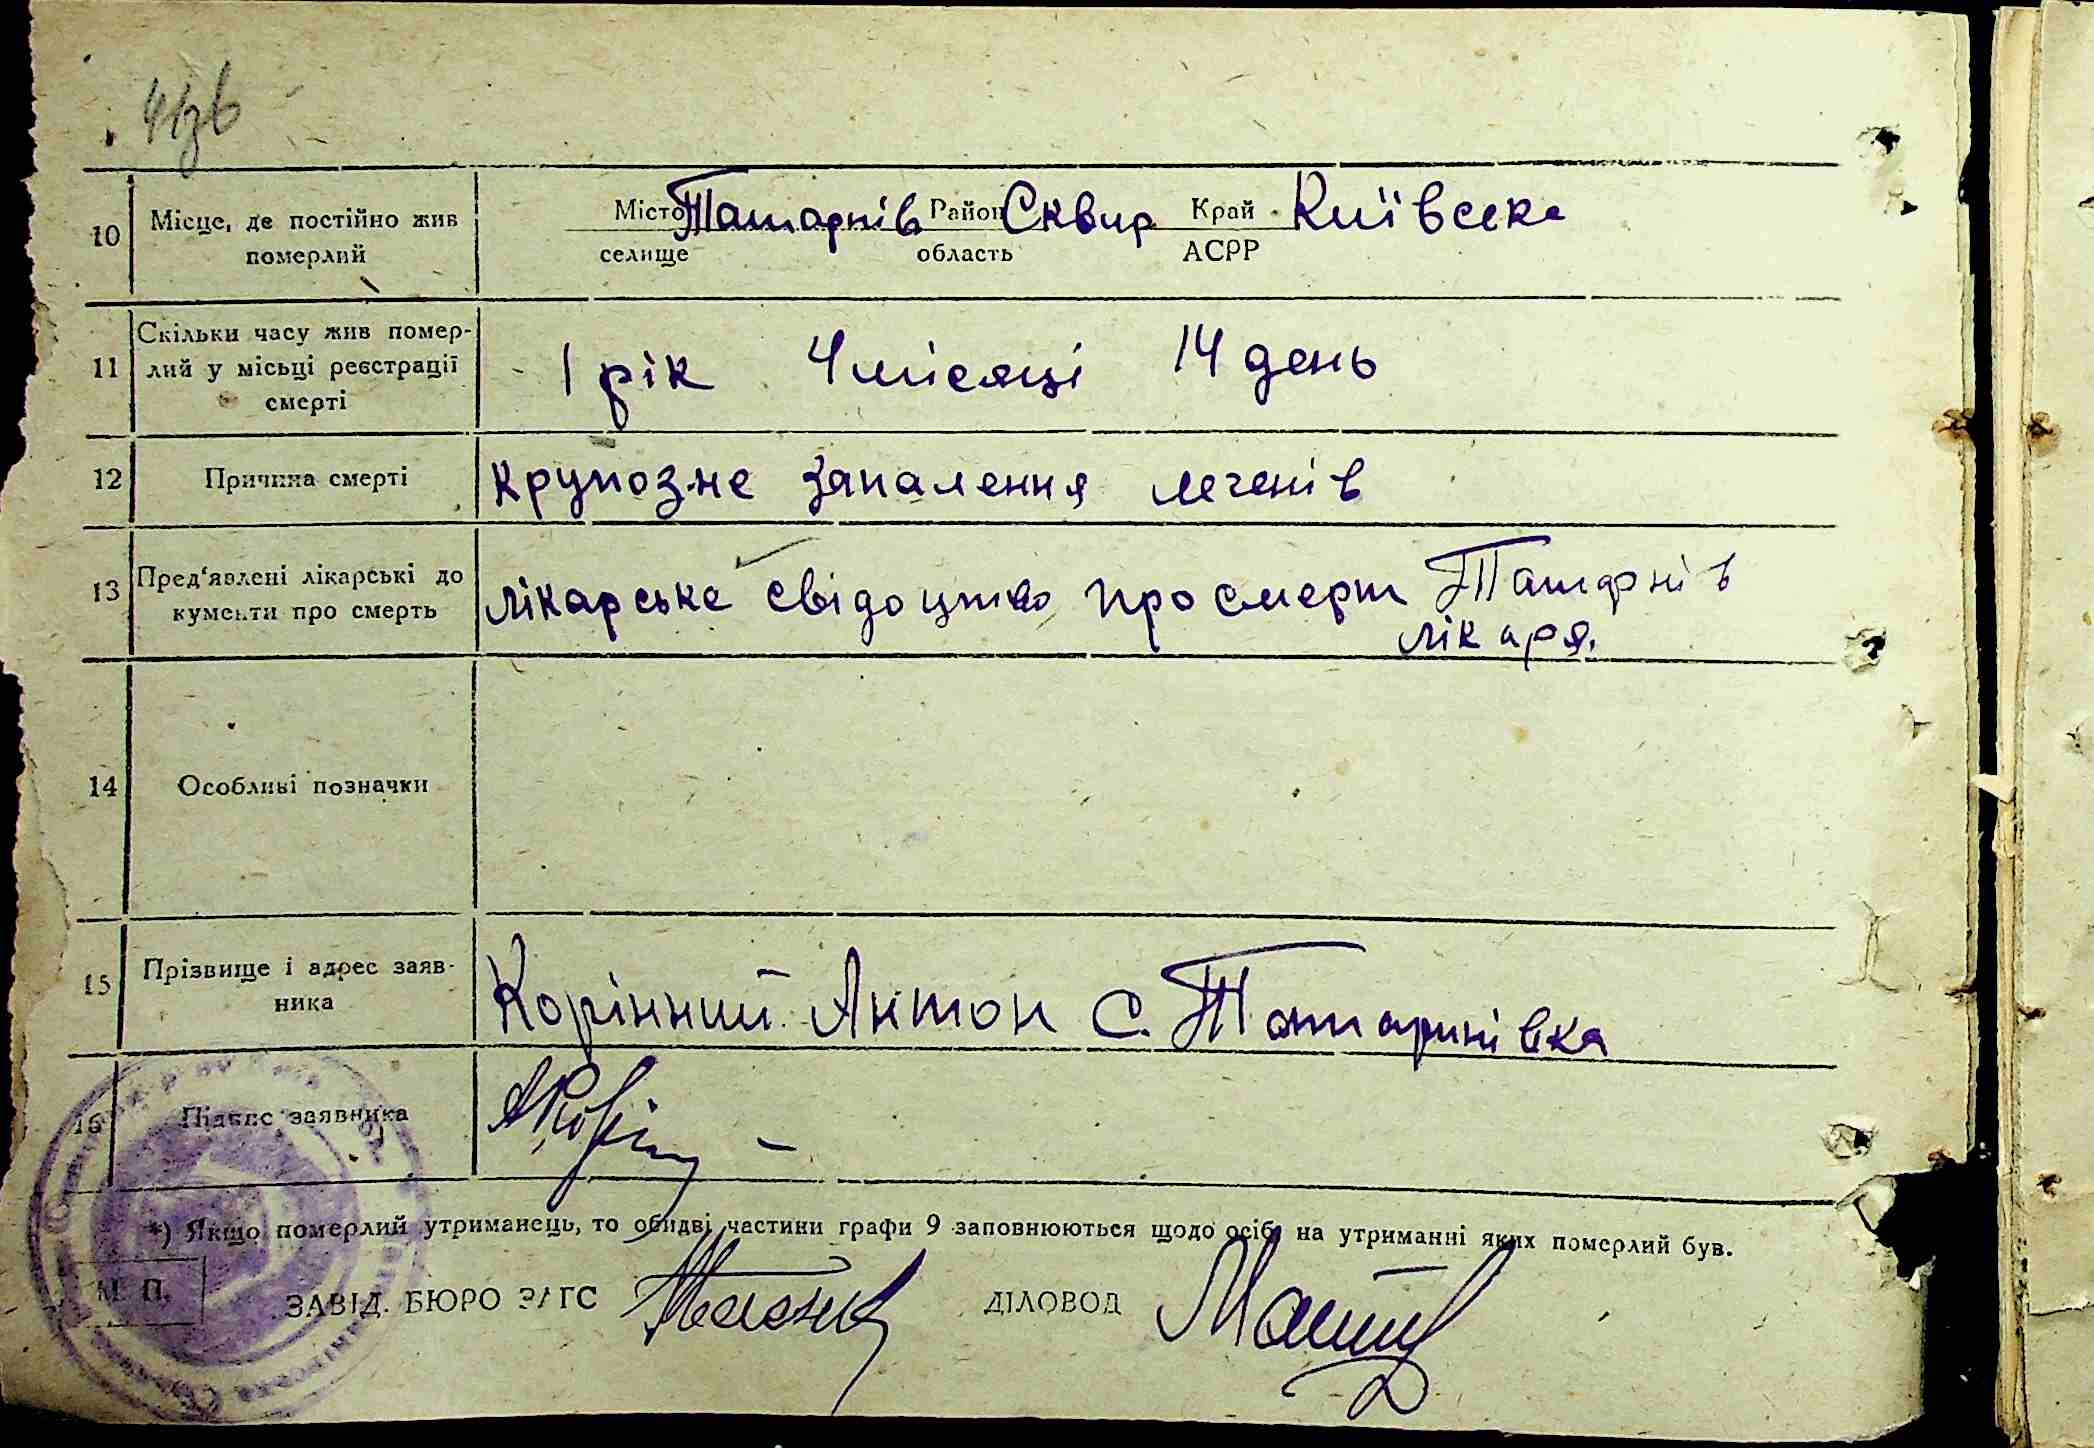 10 Місце, де постійно жив
померлий
Місто Татарнів Район Сквир Край Київське
селище область АСРР
11 Скільки часу жив помер-
лий у місьці реєстрації
смерті
1 рік 4 місяці 14 день
12 Причина смерті крупозне запалення легенів
13 Пред'явлені лікарські до
кументи про смерть
лікарське свідоцтво про смерт Татарнів
лікаря.
14 Особливі позначки
15 Прізвище і адрес заяв-
ника
Корінний Антон с. Татаринівка
16 Підпис заявника
*) Якщо померлий утриманець, то обидві частини графи 9 заповнюються щодо осіб, на утриманні яких померлий був.
М. П.
ЗАВІД. БЮРО ЗАГС ДІЛОВОД